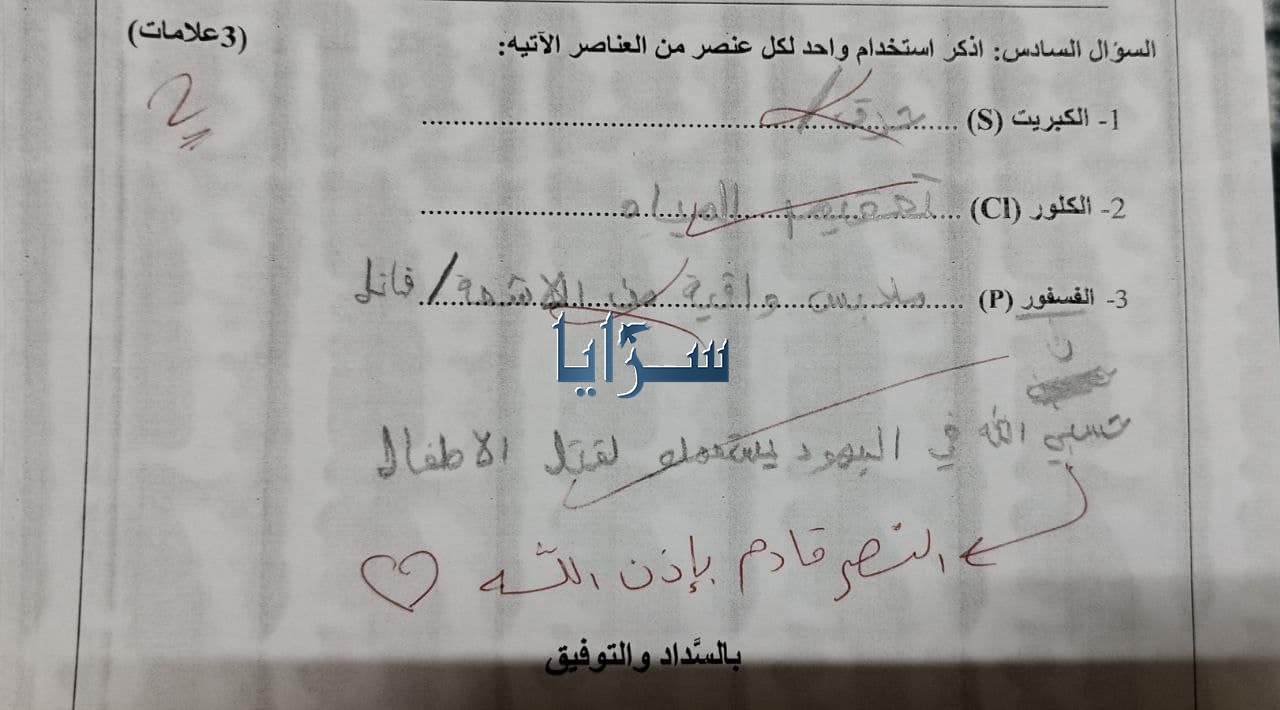 السؤال السادس: اذكر استخدام واحد لكل عنصر من العناصر الآتيه: (3علامات)
2
1- الكبريت (S) حرق
2- الكلور (Cl) تعقيم المياه
3- الفسفور (P) ملابس واقية من الاشعة / قاتل
سرايا
حسبي الله في اليهود يستعمله لقتل الاطفال
النصر قادم بإذن الله ♡
بالسَّداد والتوفيق